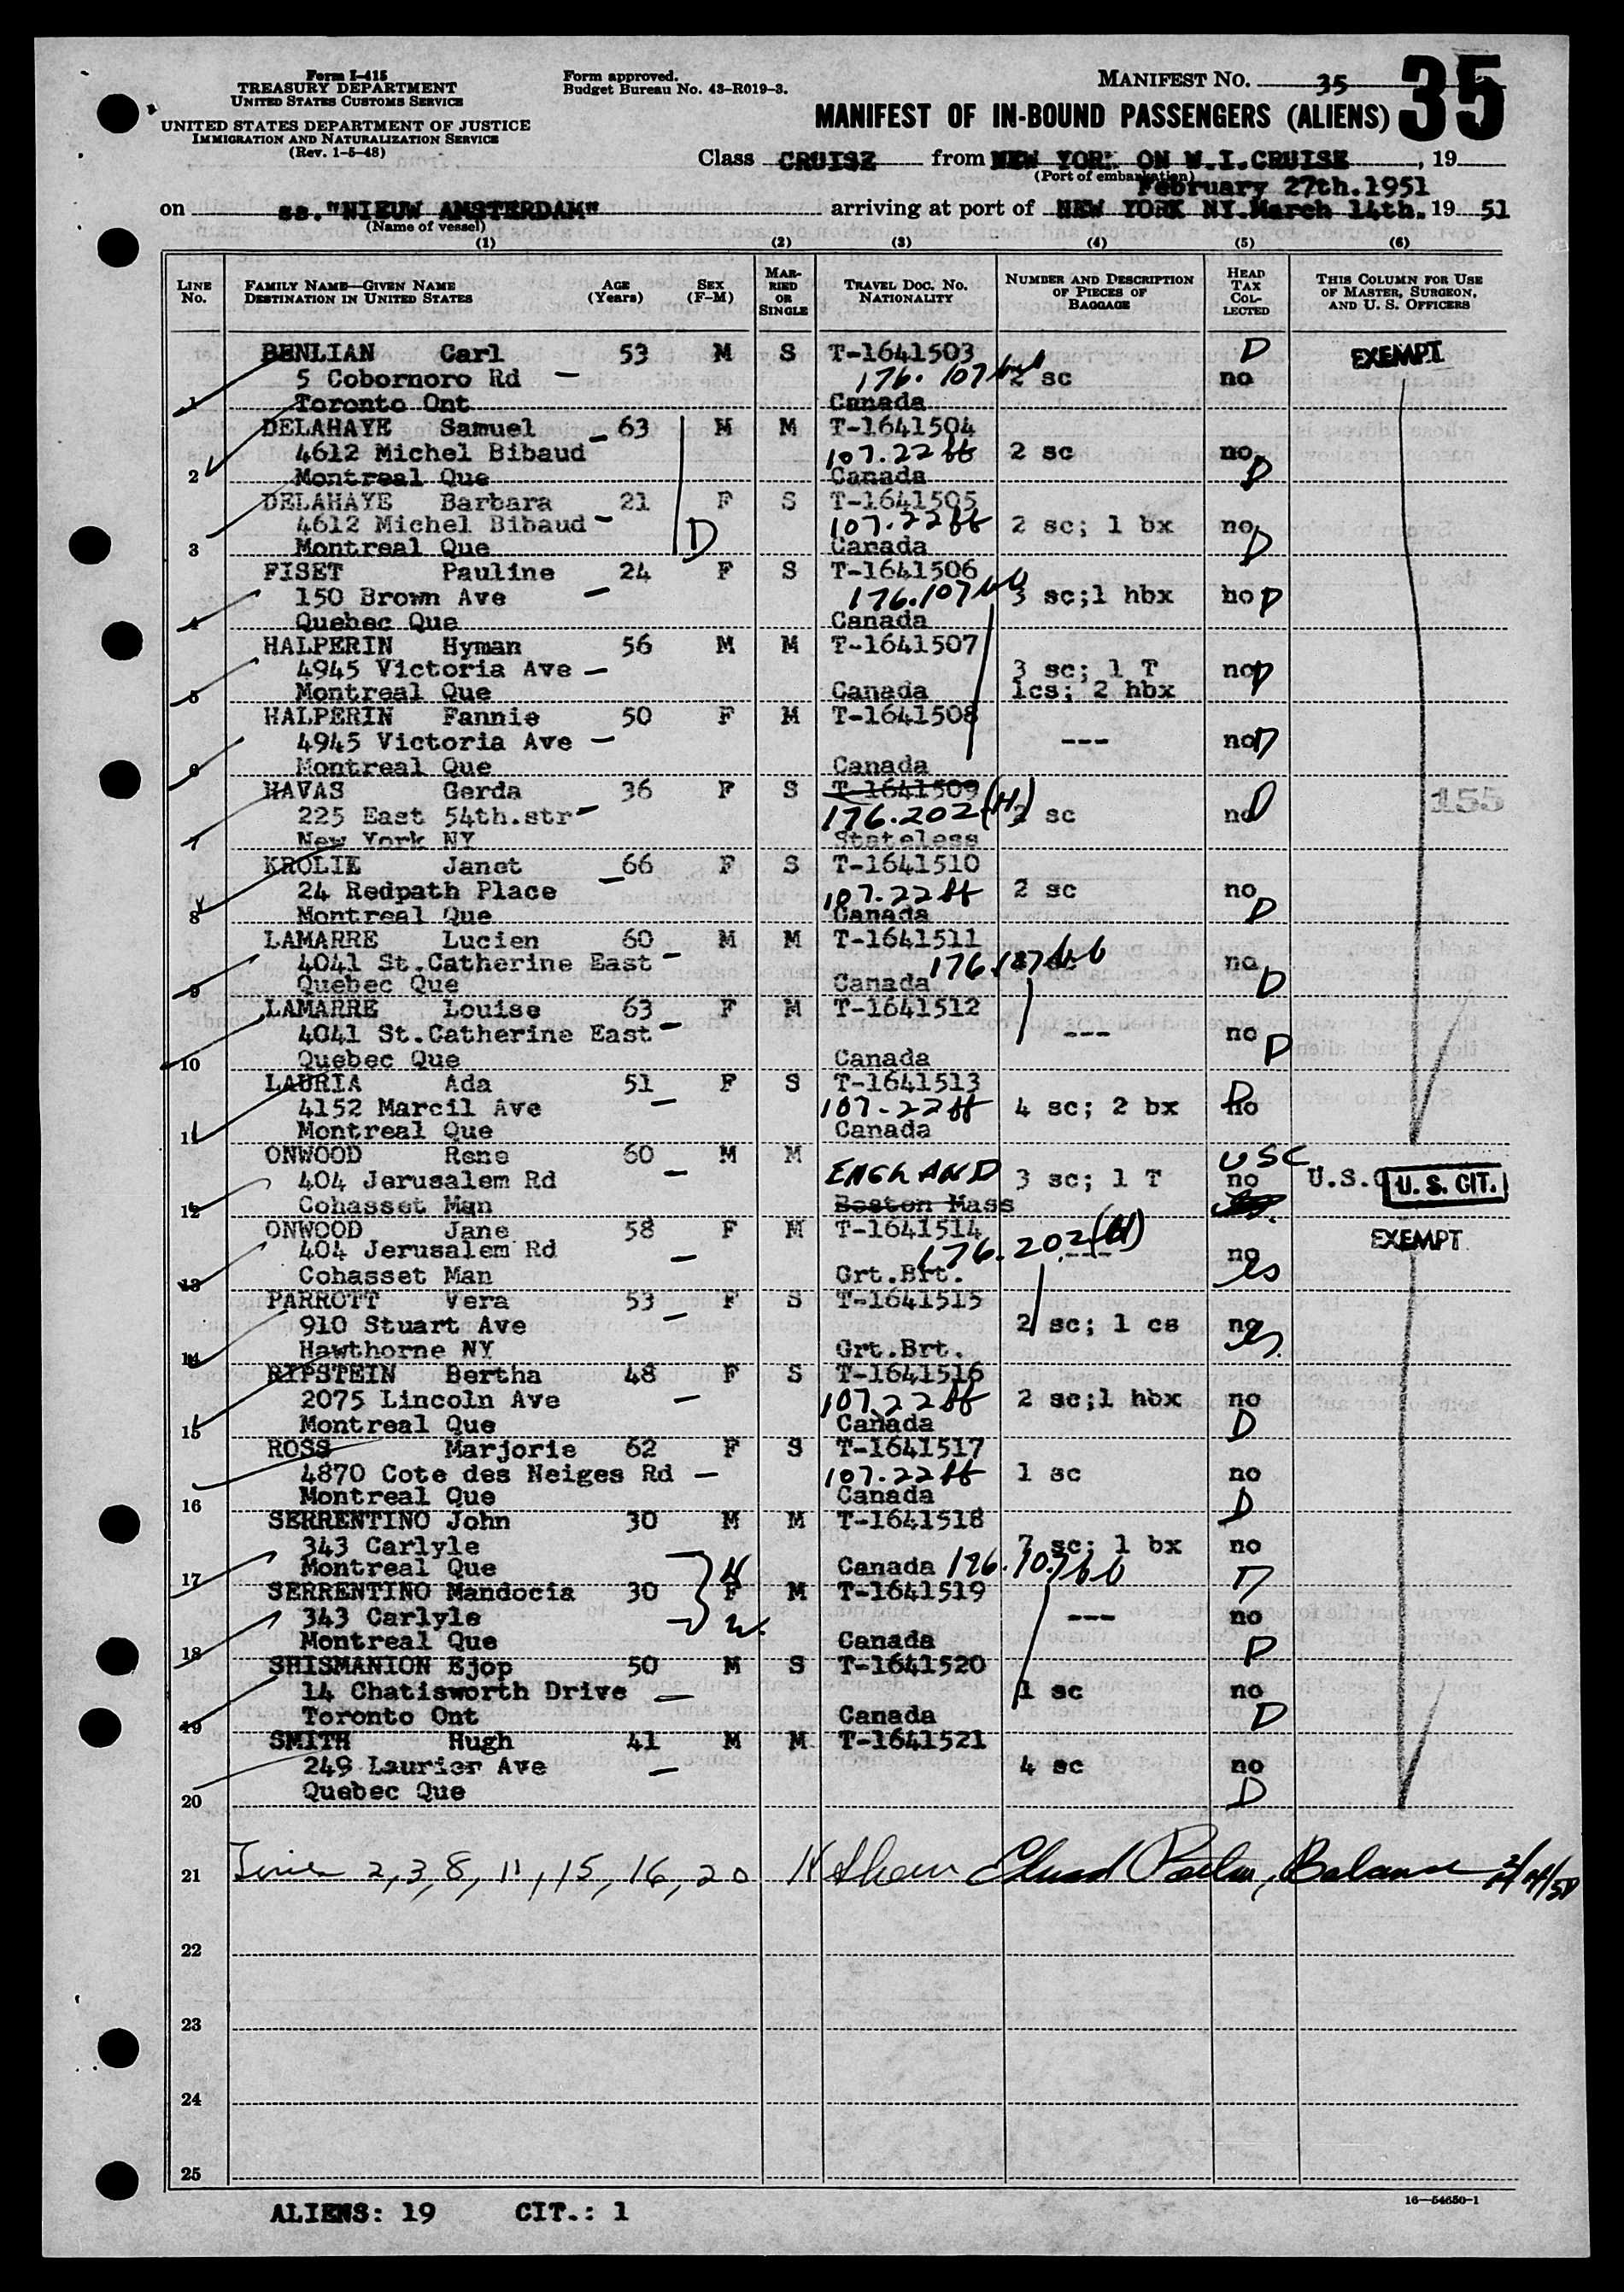 Form I-415
TREASURY DEPARTMENT
UNITED STATES CUSTOMS SERVICE
UNITED STATES DEPARTMENT OF JUSTICE
IMMIGRATION AND NATURALIZATION SERVICE
(Rev. 1-5-48)
Form approved.
Budget Bureau No. 43-R019-3.
MANIFEST NO. 35
35
MANIFEST OF IN-BOUND PASSENGERS (ALIENS)
Class CRUISE from NEW YORK ON W.I.CRUISE, 19
(Port of embarkation)
February 27th.1951
on ss."NIEUW AMSTERDAM" arriving at port of NEW YORK NY.March 14th. 19 51
(Name of vessel)
(1) (2) (3) (4) (5) (6)
LINE No. FAMILY NAME—GIVEN NAME DESTINATION IN UNITED STATES AGE (Years) SEX (F-M) MARRIED OR SINGLE TRAVEL DOC. NO. NATIONALITY NUMBER AND DESCRIPTION OF PIECES OF BAGGAGE HEAD TAX COLLECTED THIS COLUMN FOR USE OF MASTER, SURGEON, AND U. S. OFFICERS
BENLIAN Carl 53 M S T-1641503 D EXEMPT
5 Cobornoro Rd — 176.107 2 sc no
1 Toronto Ont Canada
DELAHAYE Samuel 63 M M T-1641504
4612 Michel Bibaud 107.22 ff 2 sc no
2 Montreal Que Canada D
DELAHAYE Barbara 21 F S T-1641505
4612 Michel Bibaud 107.22 ff 2 sc; 1 bx no
3 Montreal Que D Canada D
FISET Pauline 24 F S T-1641506
150 Brown Ave — 176.107 3 sc;1 hbx no D
4 Quebec Que Canada
HALPERIN Hyman 56 M M T-1641507
4945 Victoria Ave — 3 sc; 1 T no D
5 Montreal Que Canada 1cs; 2 hbx
HALPERIN Fannie 50 F M T-1641508
4945 Victoria Ave — --- no D
6 Montreal Que Canada
HAVAS Gerda 36 F S T-1641509
225 East 54th.str 176.202(H) sc no D 155
7 New York NY Stateless
KROLIK Janet 66 F S T-1641510
24 Redpath Place 107.22 ff 2 sc no
8 Montreal Que Canada D
LAMARRE Lucien 60 M M T-1641511
4041 St.Catherine East 176.107 no
9 Quebec Que Canada D
LAMARRE Louise 63 F M T-1641512
4041 St.Catherine East --- no
10 Quebec Que Canada D
LAURIA Ada 51 F S T-1641513
4152 Marcil Ave 107.22 ff 4 sc; 2 bx no D
11 Montreal Que Canada
ONWOOD Rene 60 M M USC
404 Jerusalem Rd ENGLAND 3 sc; 1 T no U.S.C U. S. CIT.
12 Cohasset Man Boston Mass
ONWOOD Jane 58 F M T-1641514 EXEMPT
404 Jerusalem Rd 176.202(H) --- no
13 Cohasset Man Grt.Brt.
PARROTT Vera 53 F S T-1641515
910 Stuart Ave 2 sc; 1 cs no
14 Hawthorne NY Grt.Brt.
RIPSTEIN Bertha 48 F S T-1641516
2075 Lincoln Ave 107.22 ff 2 sc;1 hbx no
15 Montreal Que Canada D
ROSS Marjorie 62 F S T-1641517
4870 Cote des Neiges Rd 107.22 ff 1 sc no
16 Montreal Que Canada D
SERRENTINO John 30 M M T-1641518
343 Carlyle 7 sc; 1 bx no
17 Montreal Que H Canada 176.107 D
SERRENTINO Mandocia 30 F M T-1641519
343 Carlyle W. --- no
18 Montreal Que Canada D
SHISMANION Ejop 50 M S T-1641520
14 Chatisworth Drive — 1 sc no
19 Toronto Ont Canada D
SMITH Hugh 41 M M T-1641521
249 Laurier Ave — 4 sc no
20 Quebec Que D
21 2,3,8,11,15,16,20 Balance
22
23
24
25
16—54650-1
ALIENS: 19 CIT.: 1